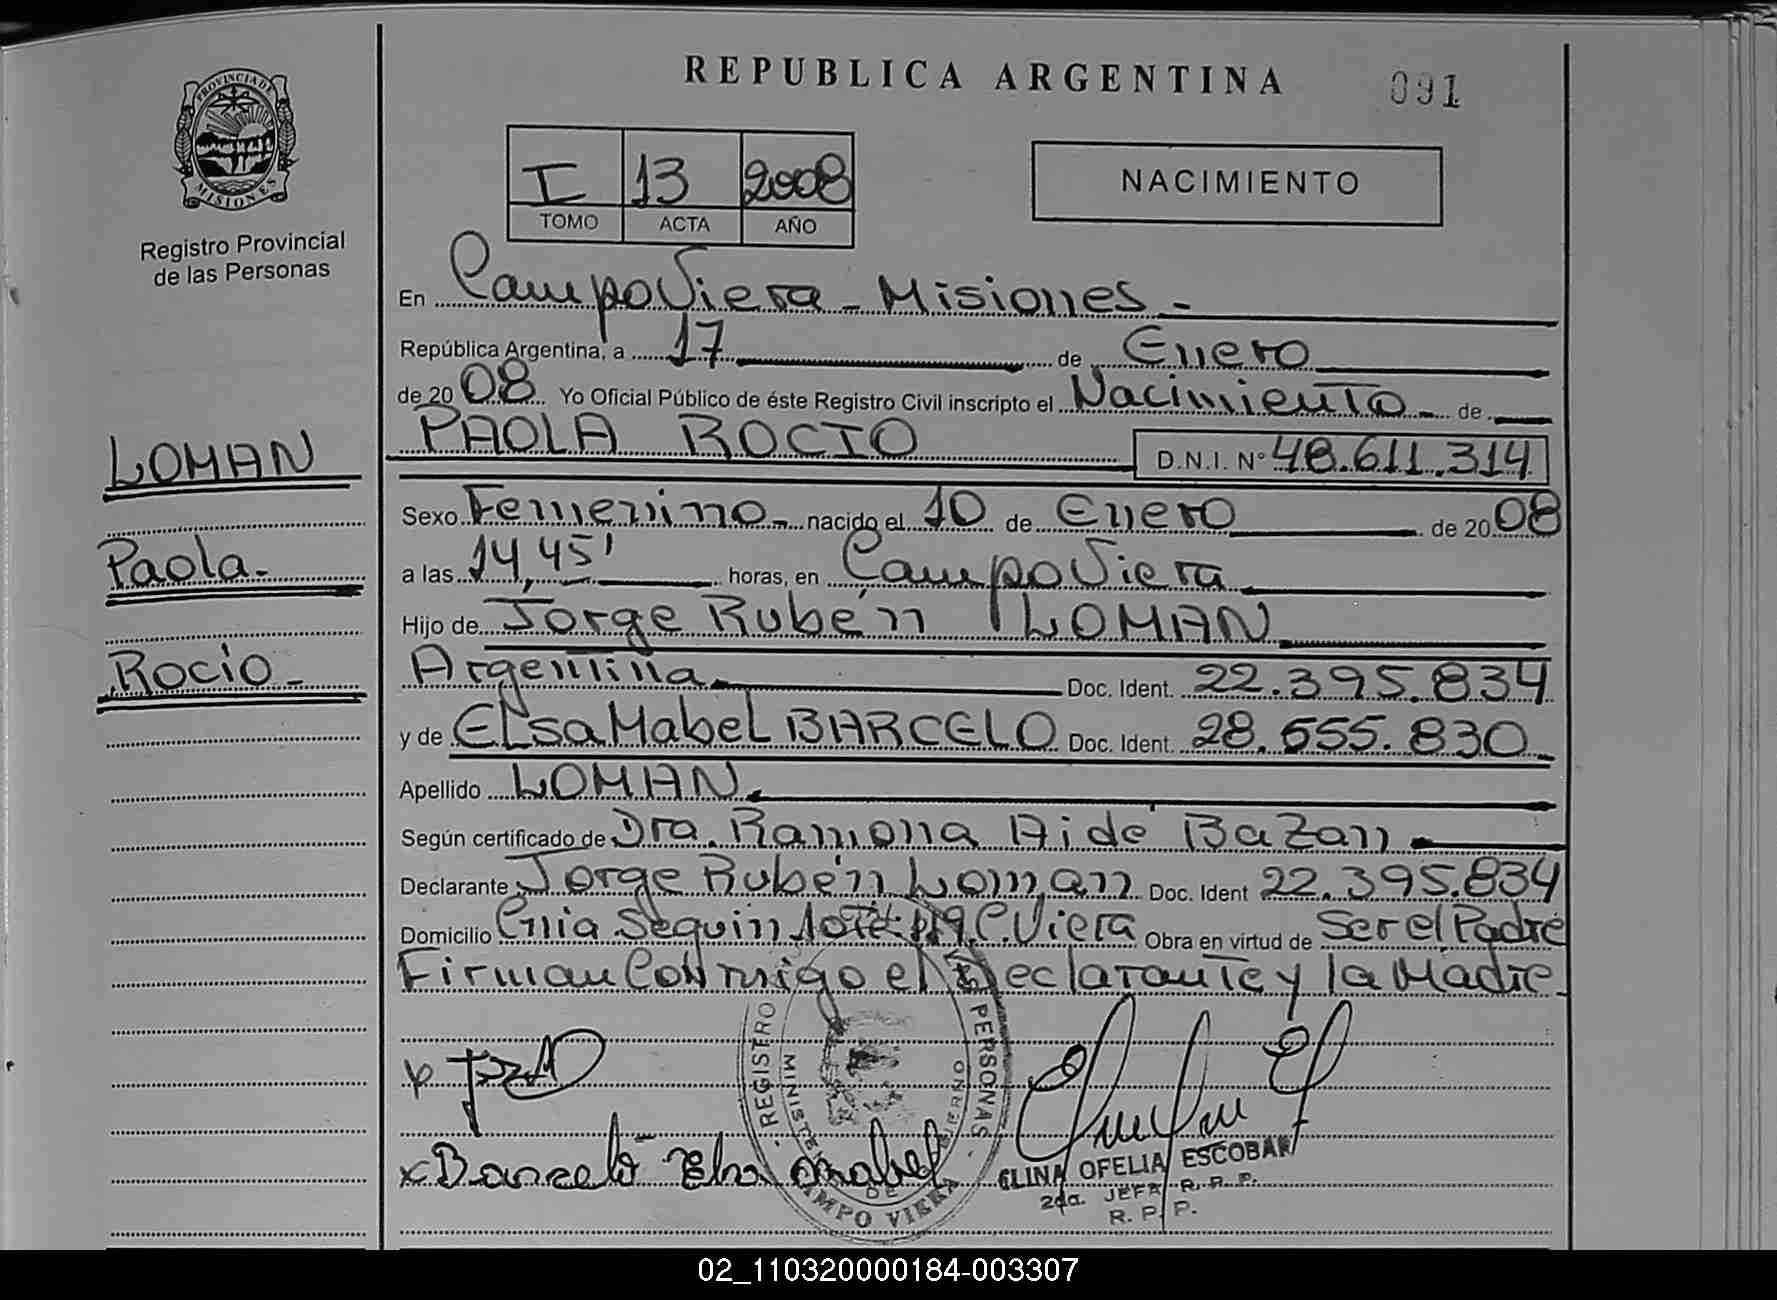 REPUBLICA ARGENTINA
091
PROVINCIA DE MISIONES
Registro Provincial
de las Personas
I 13 2008
TOMO ACTA AÑO
NACIMIENTO
En Campo Viera - Misiones -
República Argentina, a 17 de Enero
de 2008 Yo Oficial Público de éste Registro Civil inscripto el Nacimiento - de
PAOLA ROCIO D.N.I. N° 48.611.314
LOMAN
Paola -
Rocio -
Sexo Femenino - nacido el 10 de Enero de 2008
a las 14,45' horas, en Campo Viera
Hijo de Jorge Rubén LOMAN
Argentina Doc. Ident. 22.395.834
y de Elsa Mabel BARCELO Doc. Ident. 28.555.830 -
Apellido LOMAN
Según certificado de Dra. Ramona Aidé Bazan
Declarante Jorge Rubén Loman Doc. Ident 22.395.834
Domicilio Cnia Seguin Lote 19 C. Viera Obra en virtud de Ser el Padre
Firman Conmigo el Declarante y la Madre
REGISTRO PERSONAS
MINISTE
DE
CAMPO VIERA
x Barcelo Elsa Mabel
ELINA OFELIA ESCOBAR
2da. JEFA R. R. P.
R. P. P.
02_110320000184-003307